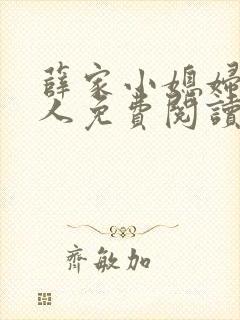 薛家小媳婦
人免費閱讀
齊敏加